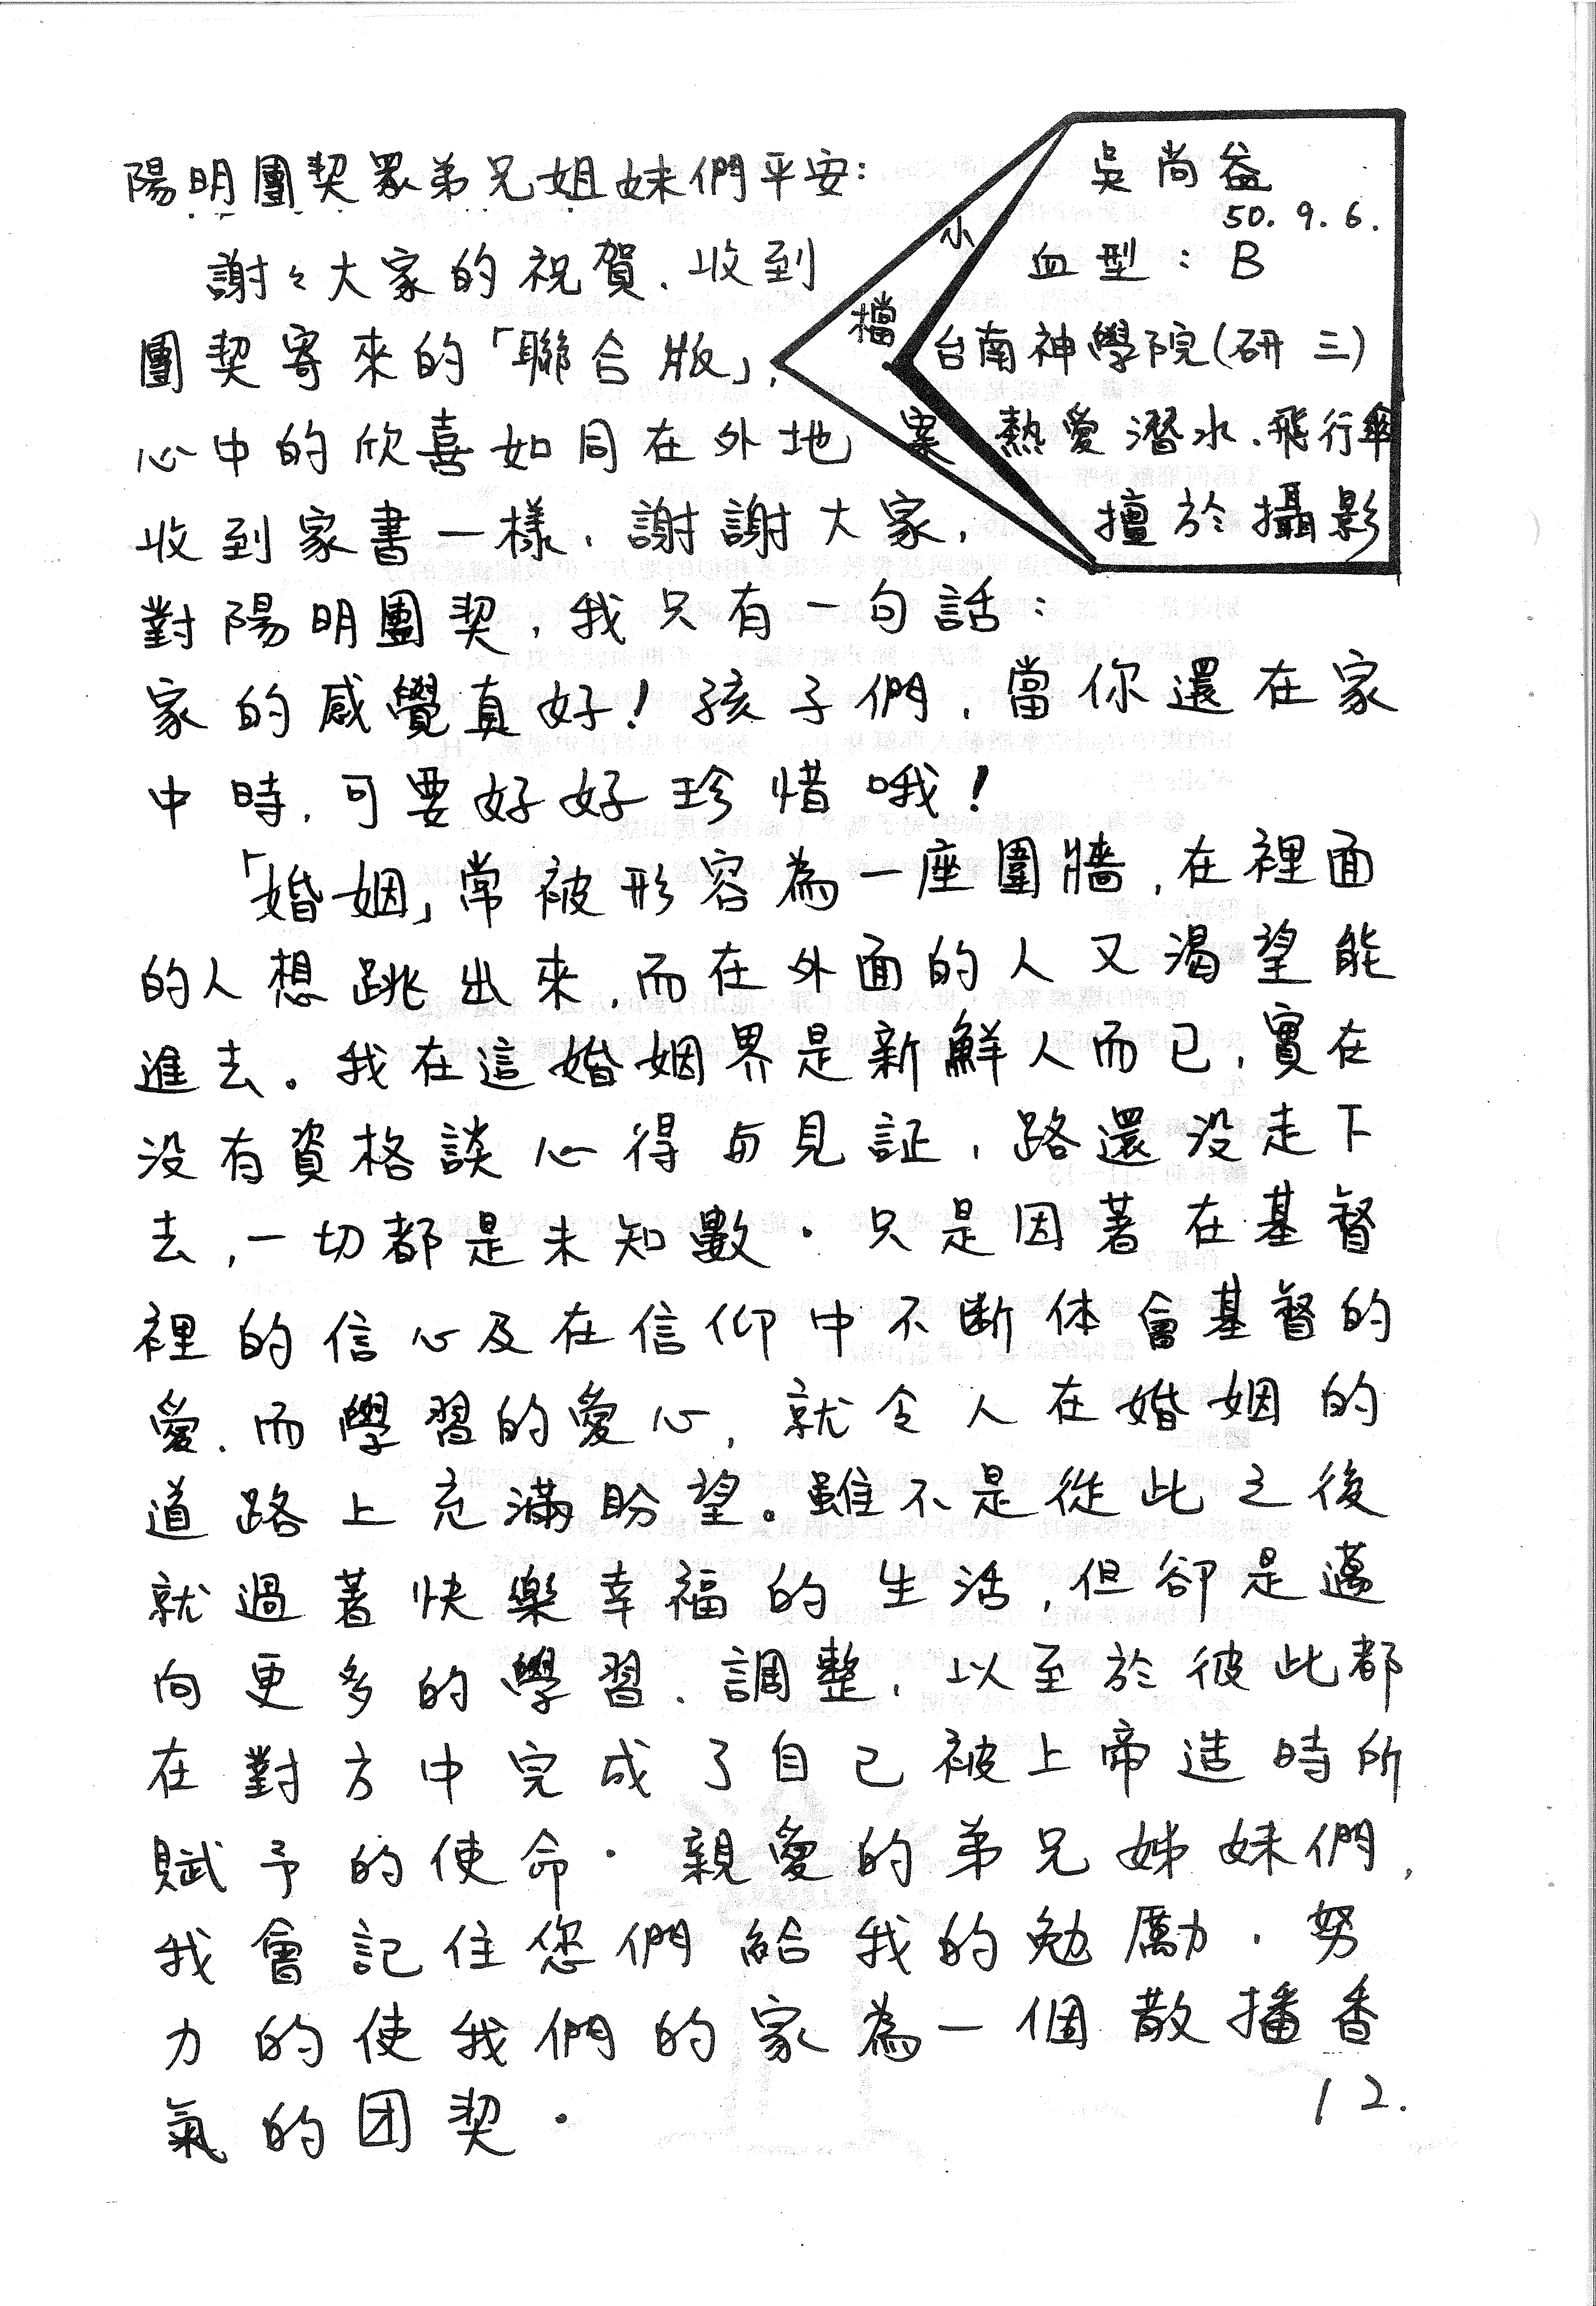 陽明團契眾弟兄姐妹們平安：
謝々大家的祝賀、收到
團契寄來的「聯合版」，
心中的欣喜如同在外地
收到家書一樣，謝謝大家，
對陽明團契，我只有一句話：
家的感覺真好！孩子們，當你還在家
中時，可要好好珍惜哦！
「婚姻」常被形容為一座圍牆，在裡面
的人想跳出來，而在外面的人又渴望能
進去。我在這婚姻界是新鮮人而已，實在
沒有資格談心得与見証，路還沒走下
去，一切都是未知數．只是因著在基督
裡的信心及在信仰中不斷体會基督的
愛、而學習的愛心，就令人在婚姻的
道路上充滿盼望。雖不是從此之後
就過著快樂幸福的生活，但卻是邁
向更多的學習、調整，以至於彼此都
在對方中完成了自己被上帝造時所
賦予的使命．親愛的弟兄姊妹們，
我會記住您們給我的勉勵，努
力的使我們的家為一個散播香
氣的团契．
小檔案
吳尚益
50.9.6.
血型：B
台南神學院(研三)
熱愛潛水、飛行傘
擅於攝影
12.